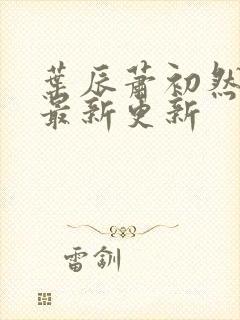 葉辰蕭初然
最新更新
雷釧